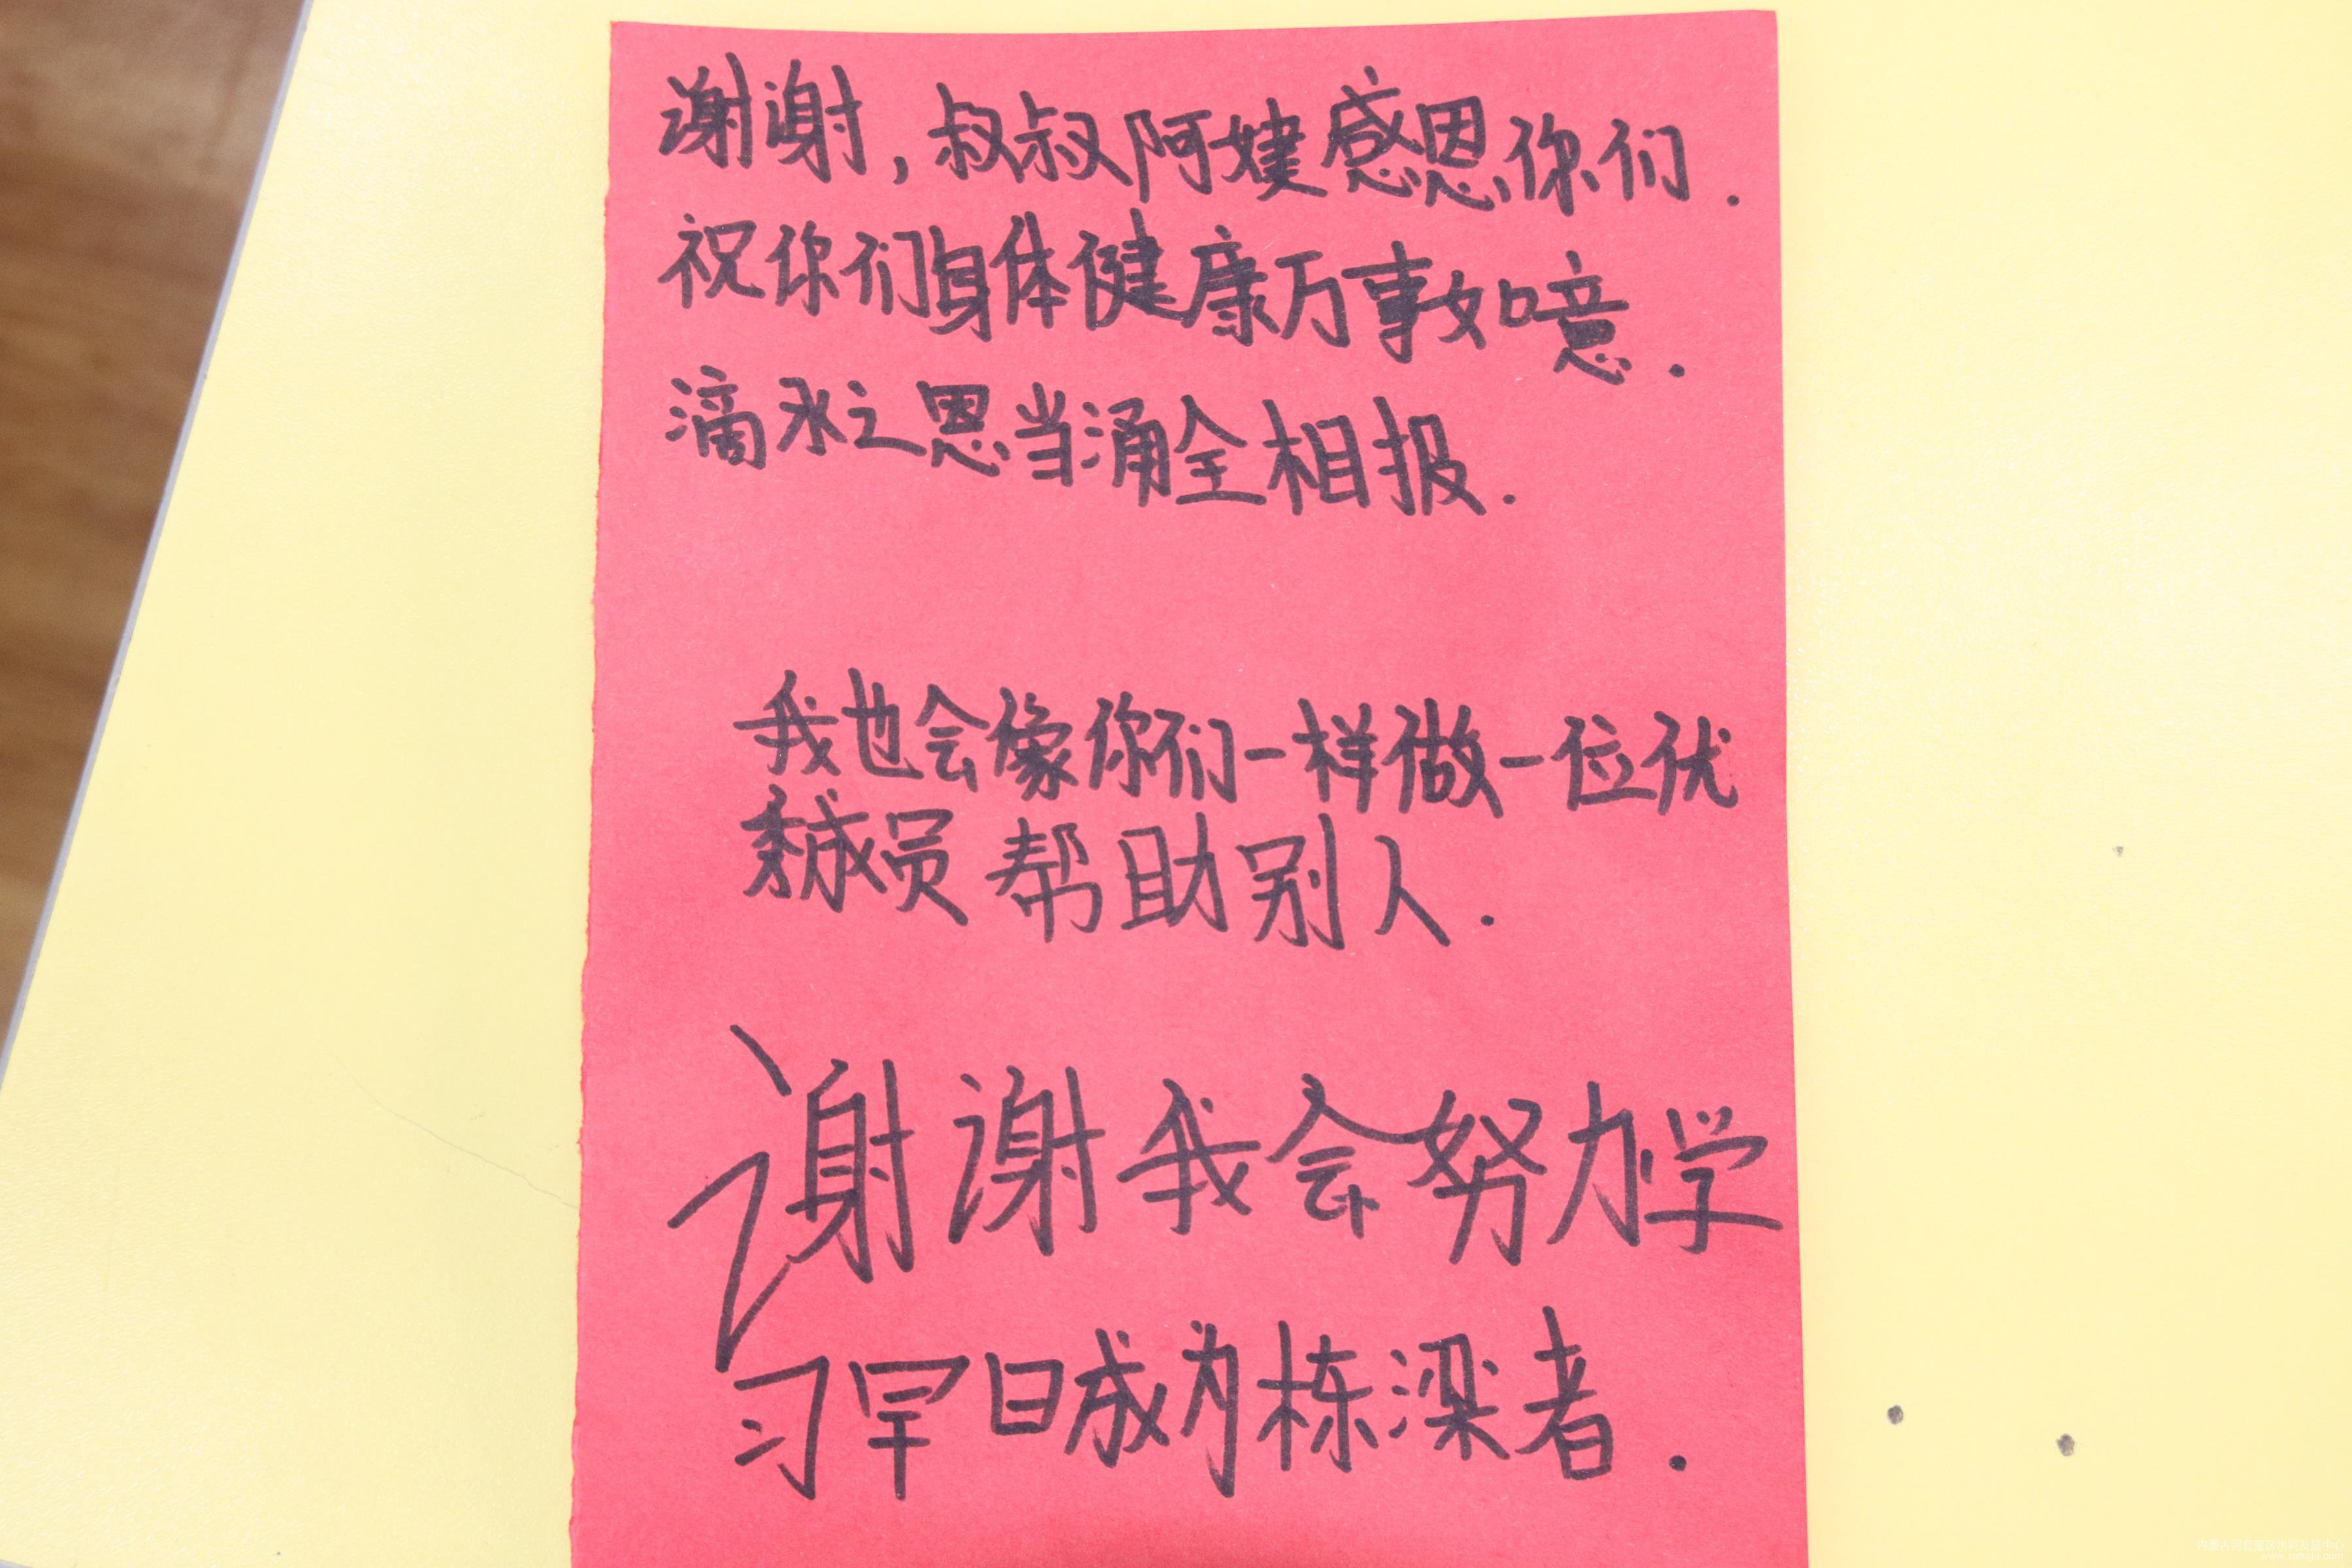 谢谢,叔叔阿婕感恩你们.
祝你们身体健康万事如意.
滴水之恩当涌全相报.
我也会像你们一样做一位优
秀成员帮助别人.
谢谢我会努力学
习早日成为栋梁者.